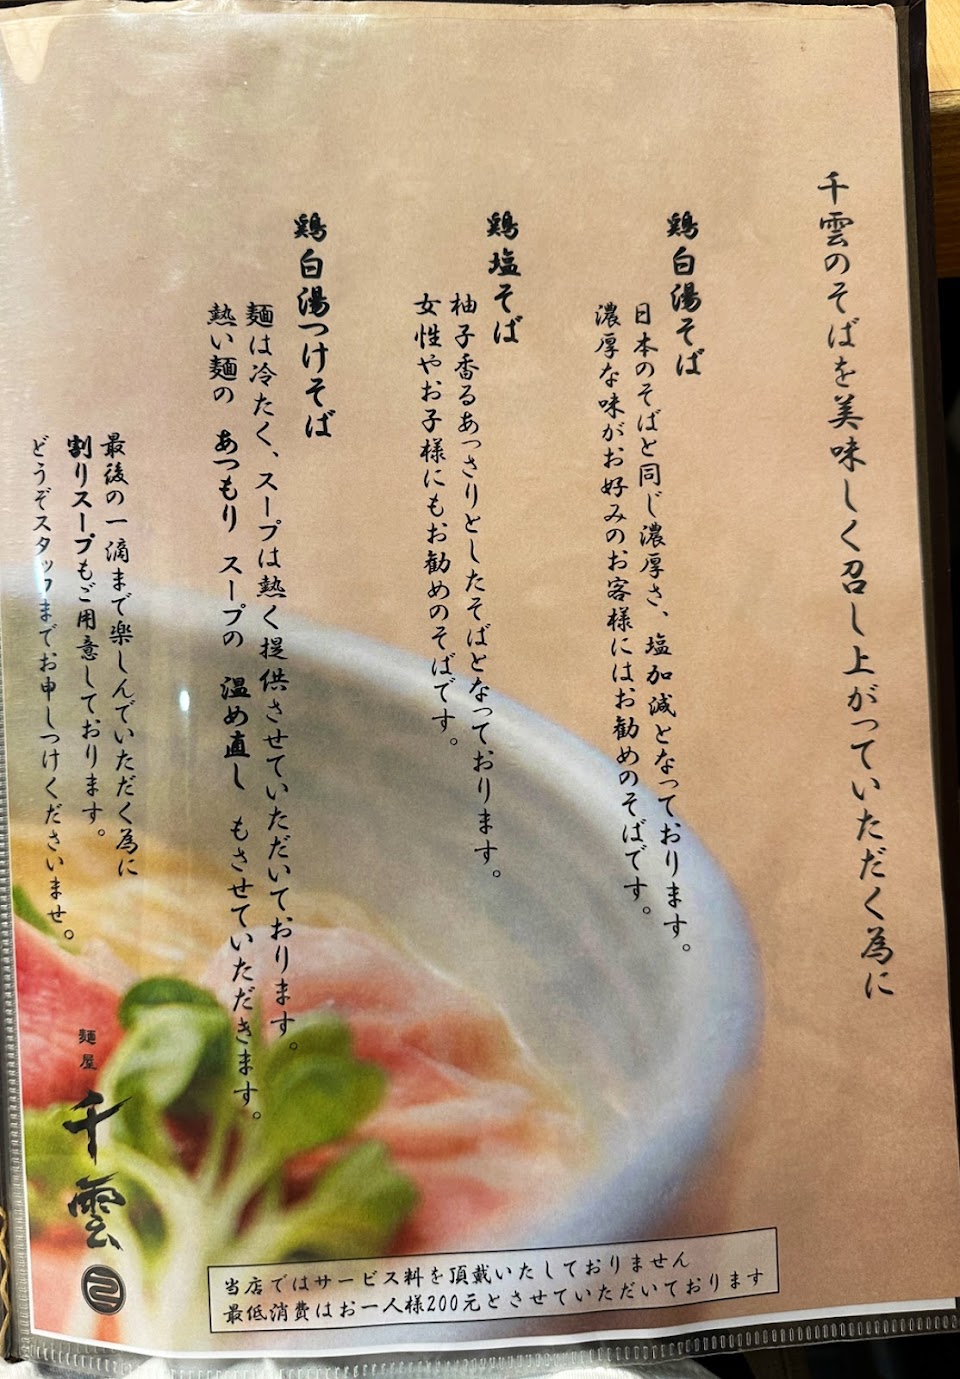 千雲のそばを美味しく召し上がっていただく為に
鶏白湯そば
日本のそばと同じ濃厚さ、塩加減となっております。
濃厚な味がお好みのお客様にはお勧めのそばです。
鶏塩そば
柚子香るあっさりとしたそばとなっております。
女性やお子様にもお勧めのそばです。
鶏白湯つけそば
麺は冷たく、スープは熱く提供させていただいております。
熱い麺の あつもり スープの 温め直し もさせていただきます。
最後の一滴まで楽しんでいただく為に
割りスープもご用意しております。
どうぞスタッフまでお申しつけくださいませ。
麺屋
千雲
当店ではサービス料を頂戴いたしておりません
最低消費はお一人様200元とさせていただいております